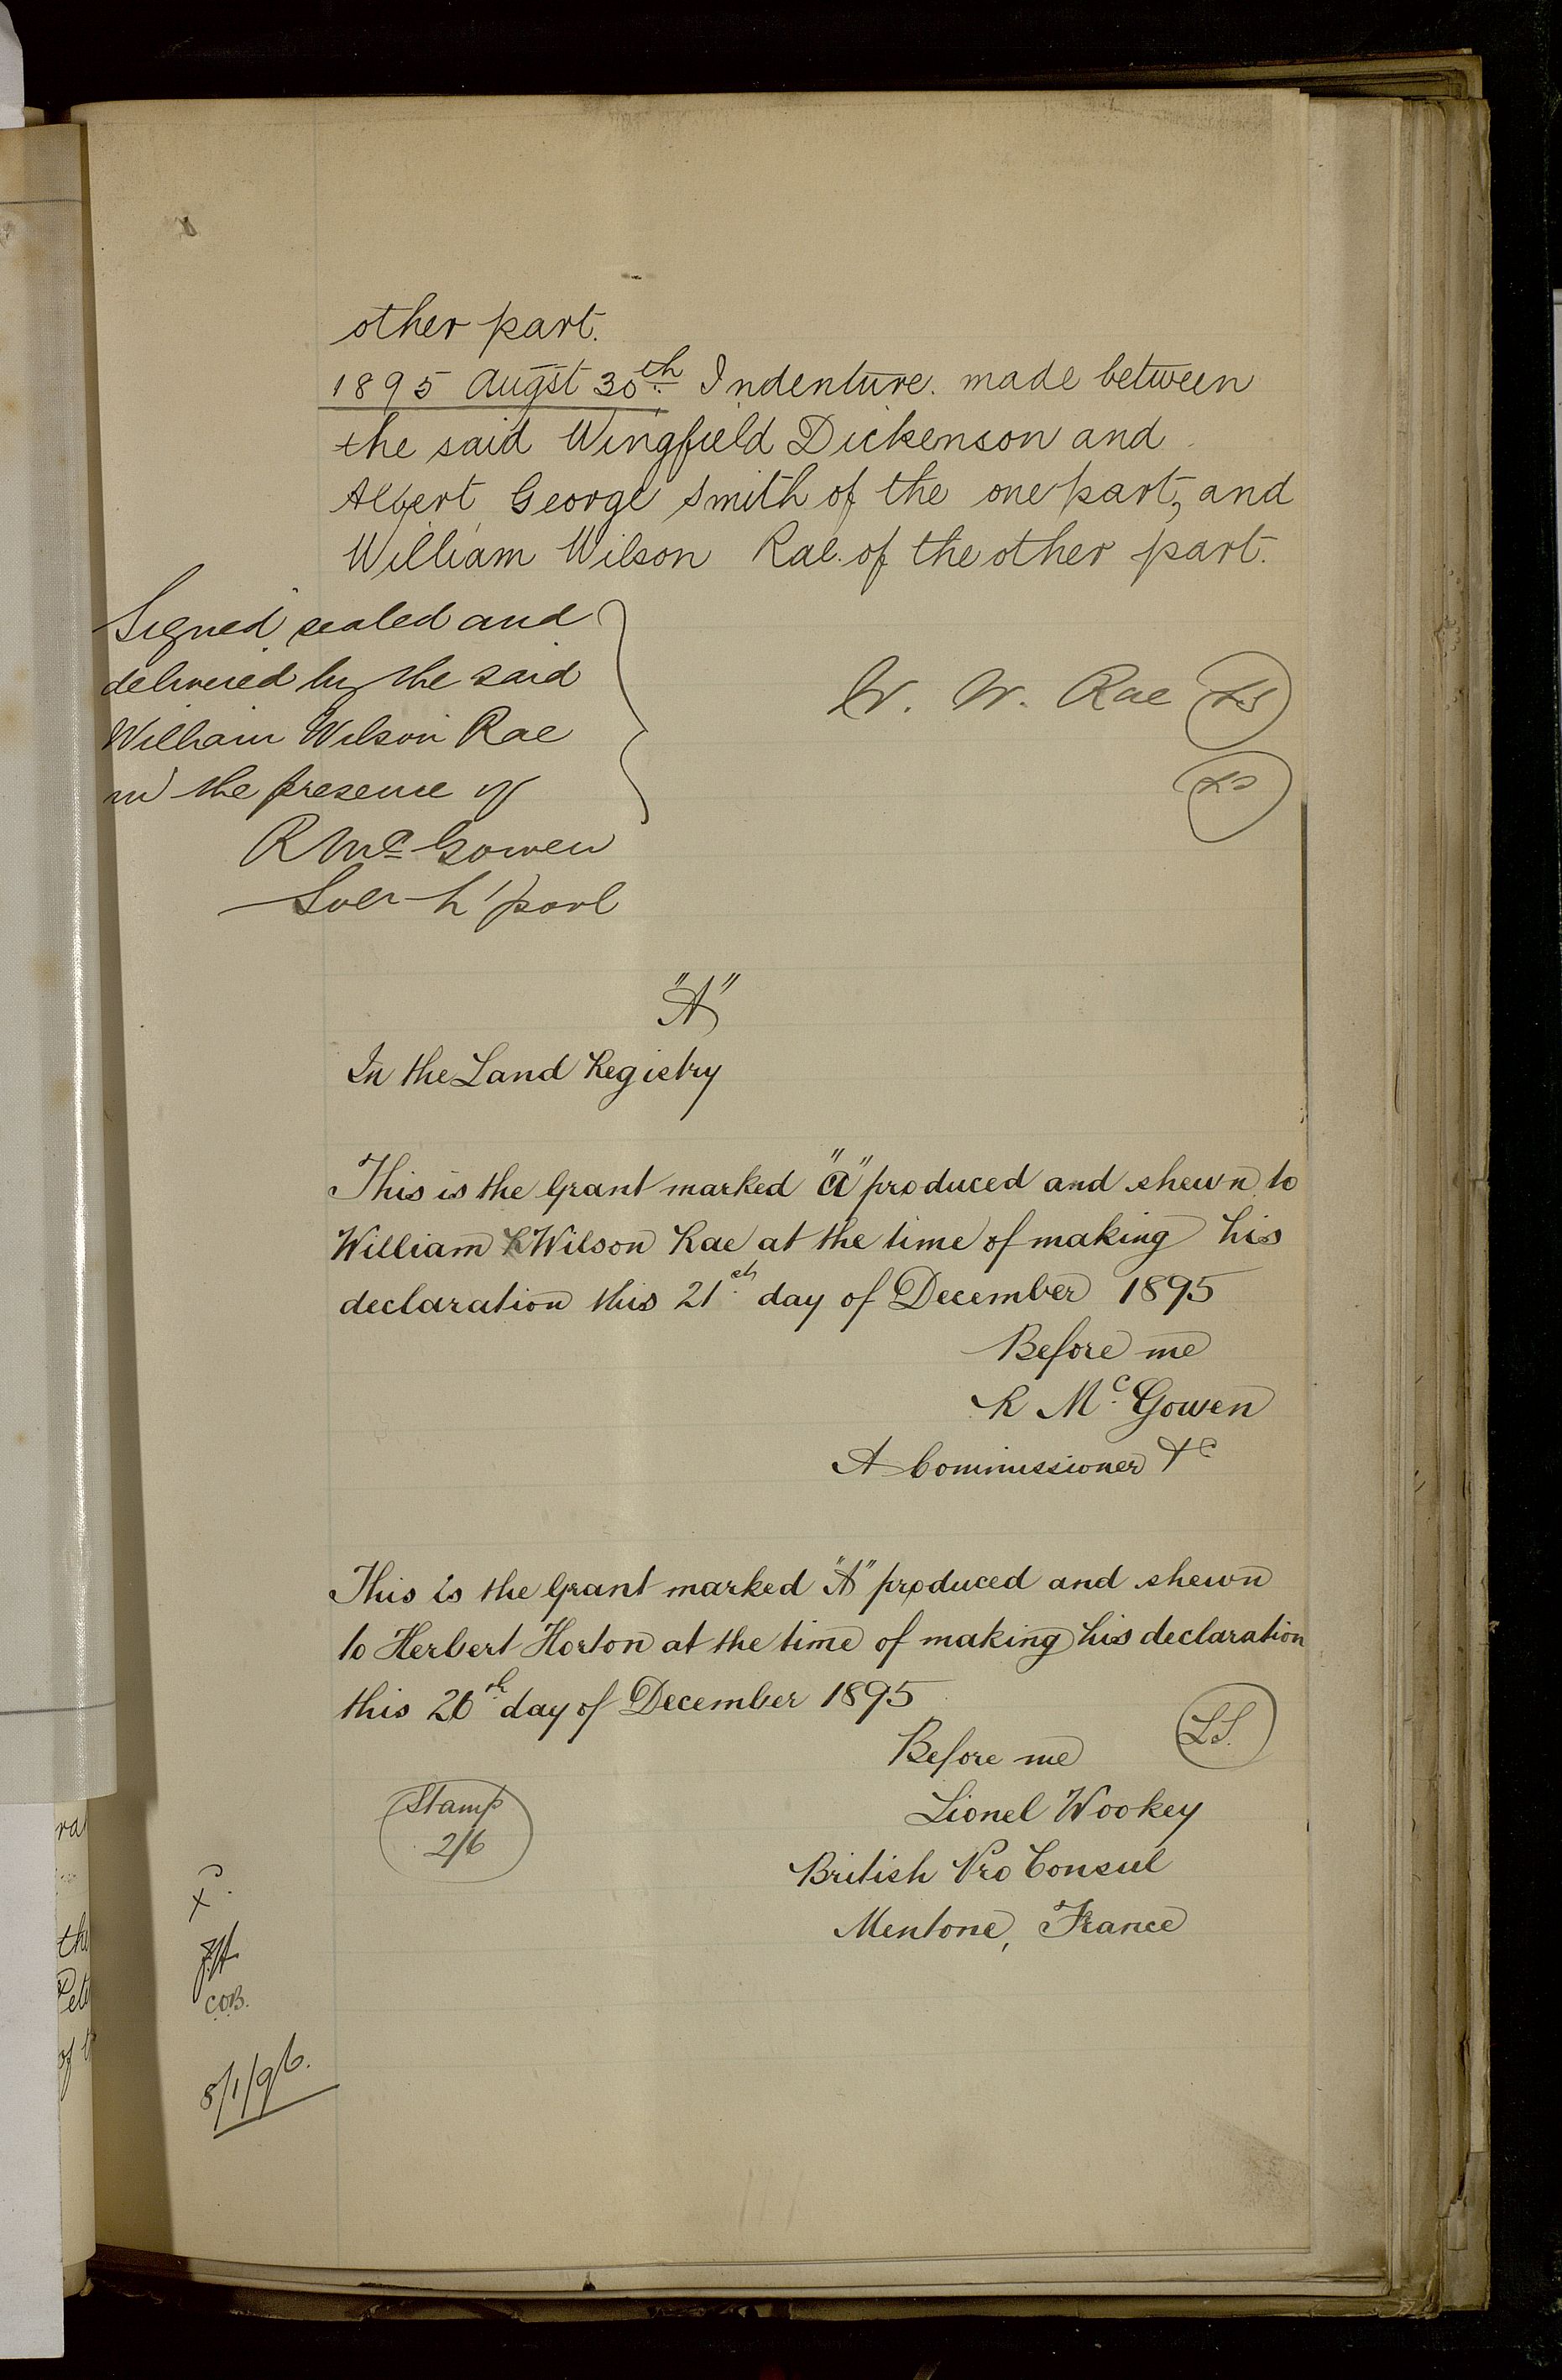 other part.
1895 Augst 30th Indenture. made between
the said Wingfield Dickenson and
Albert George Smith of the one part, and
William Wilson Rae. of the other part.
Signed sealed and
delivered by the said
William Wilson Rae
in the presence of
R McGowen
Solr L'pool
W. W. Rae LS
LS
"A"
In the Land Registry
This is the Grant marked "A" produced and shewn to
William Wilson Rae at the time of making his
declaration this 21st day of December 1895
Before me
R McGowen
A Commissioner &c
This is the Grant marked "A" produced and shewn
to Herbert Horton at the time of making his declaration
this 26th day of December 1895
LS.
Before me
Lionel Wookey
British Pro Consul
Mentone, France
Stamp
2/6
COB.
8/1/96.
ra
the
Pet
of t